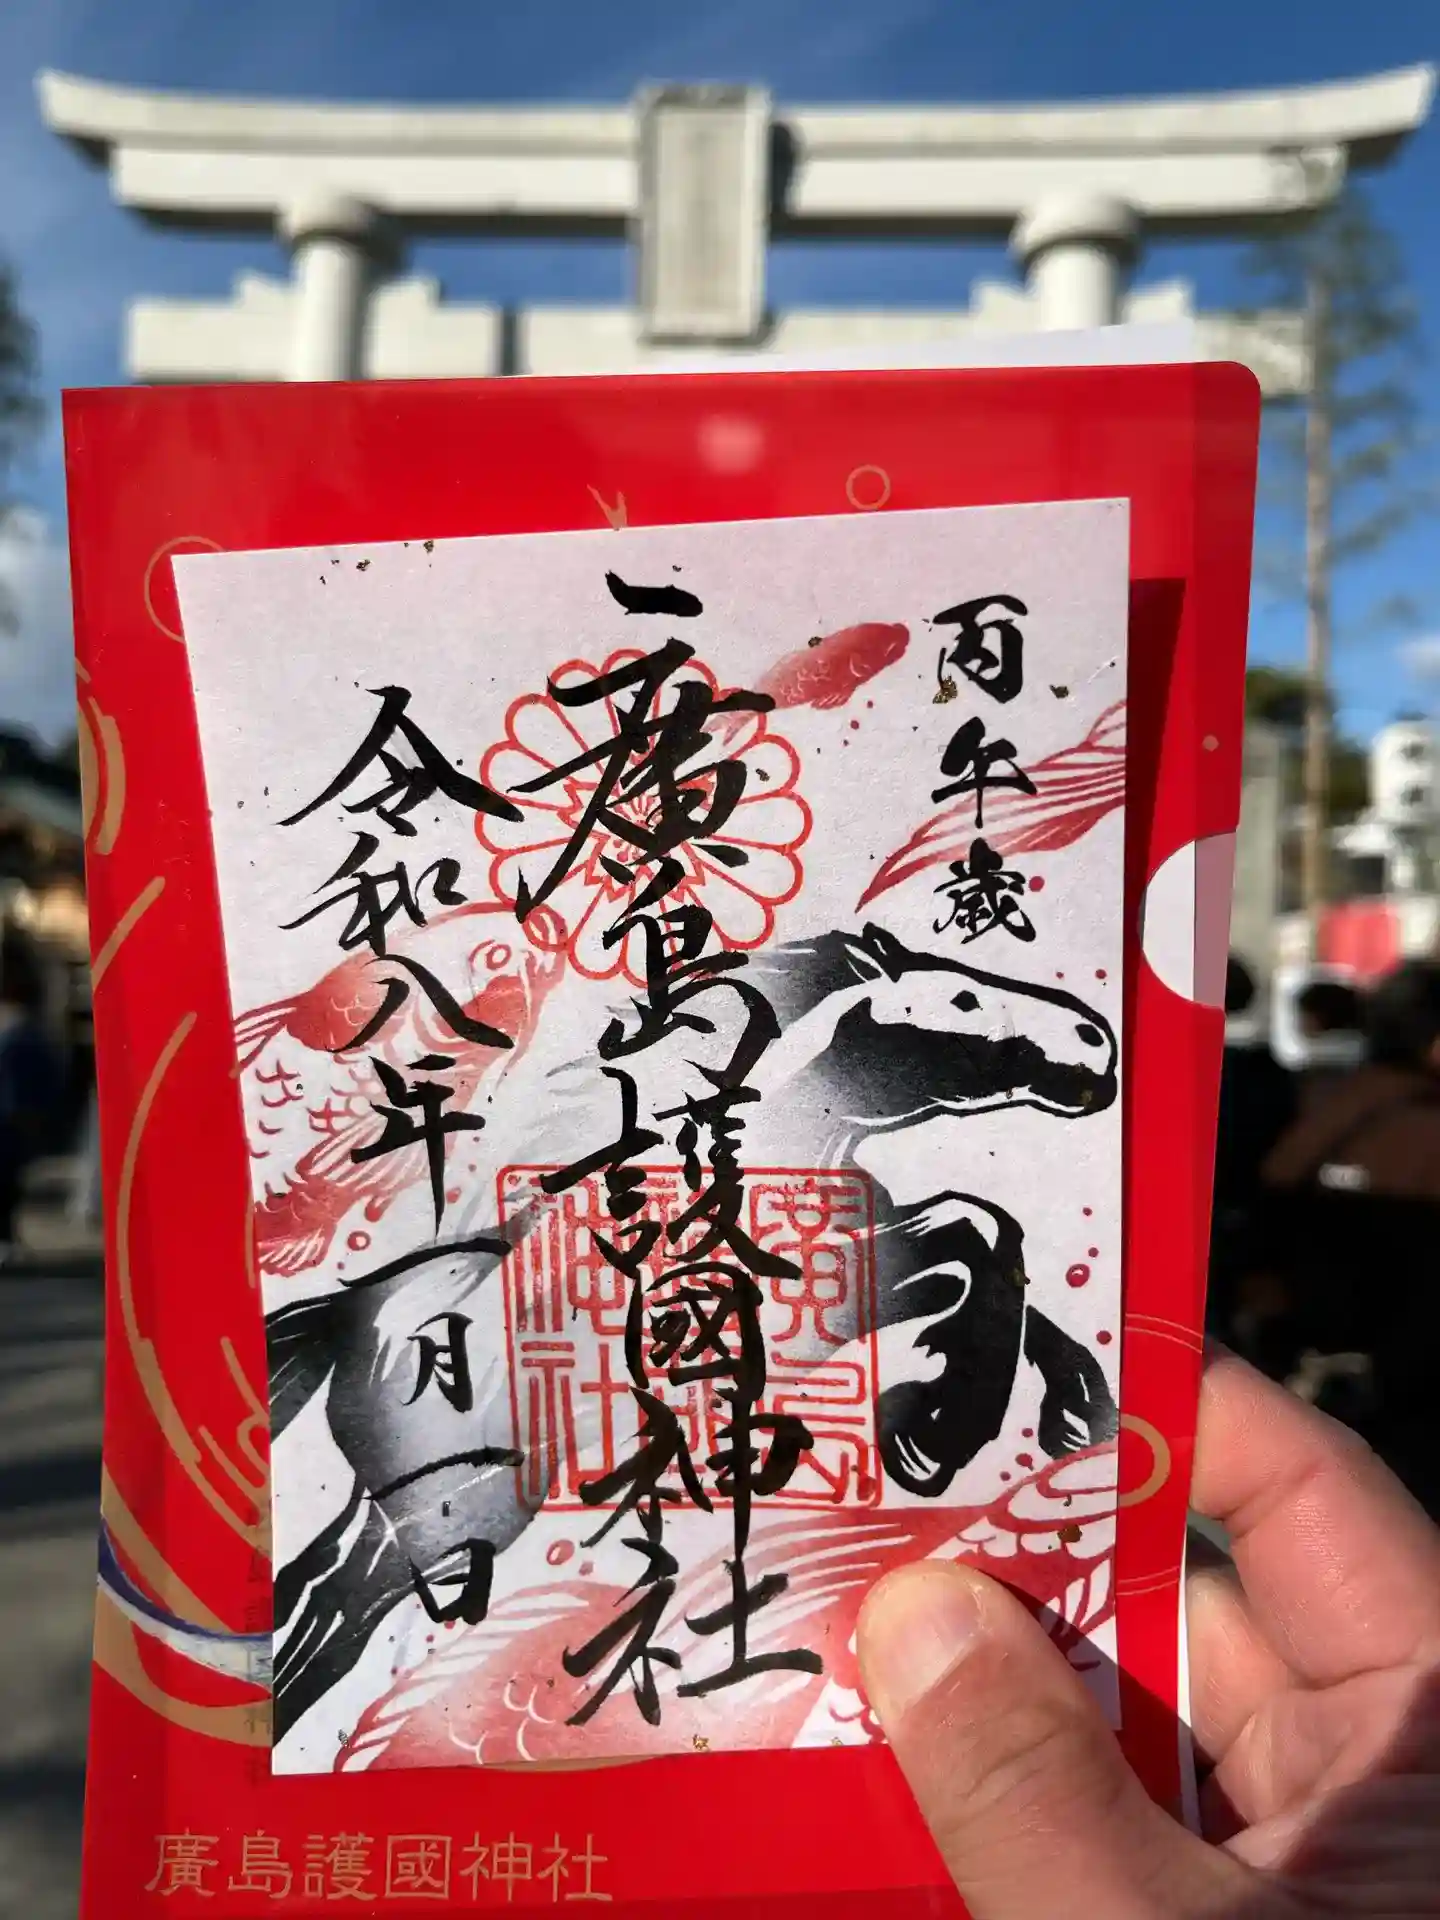 丙午歳
廣島護國神社
令和八年
一月一日
廣島護國神社
廣島護國神社